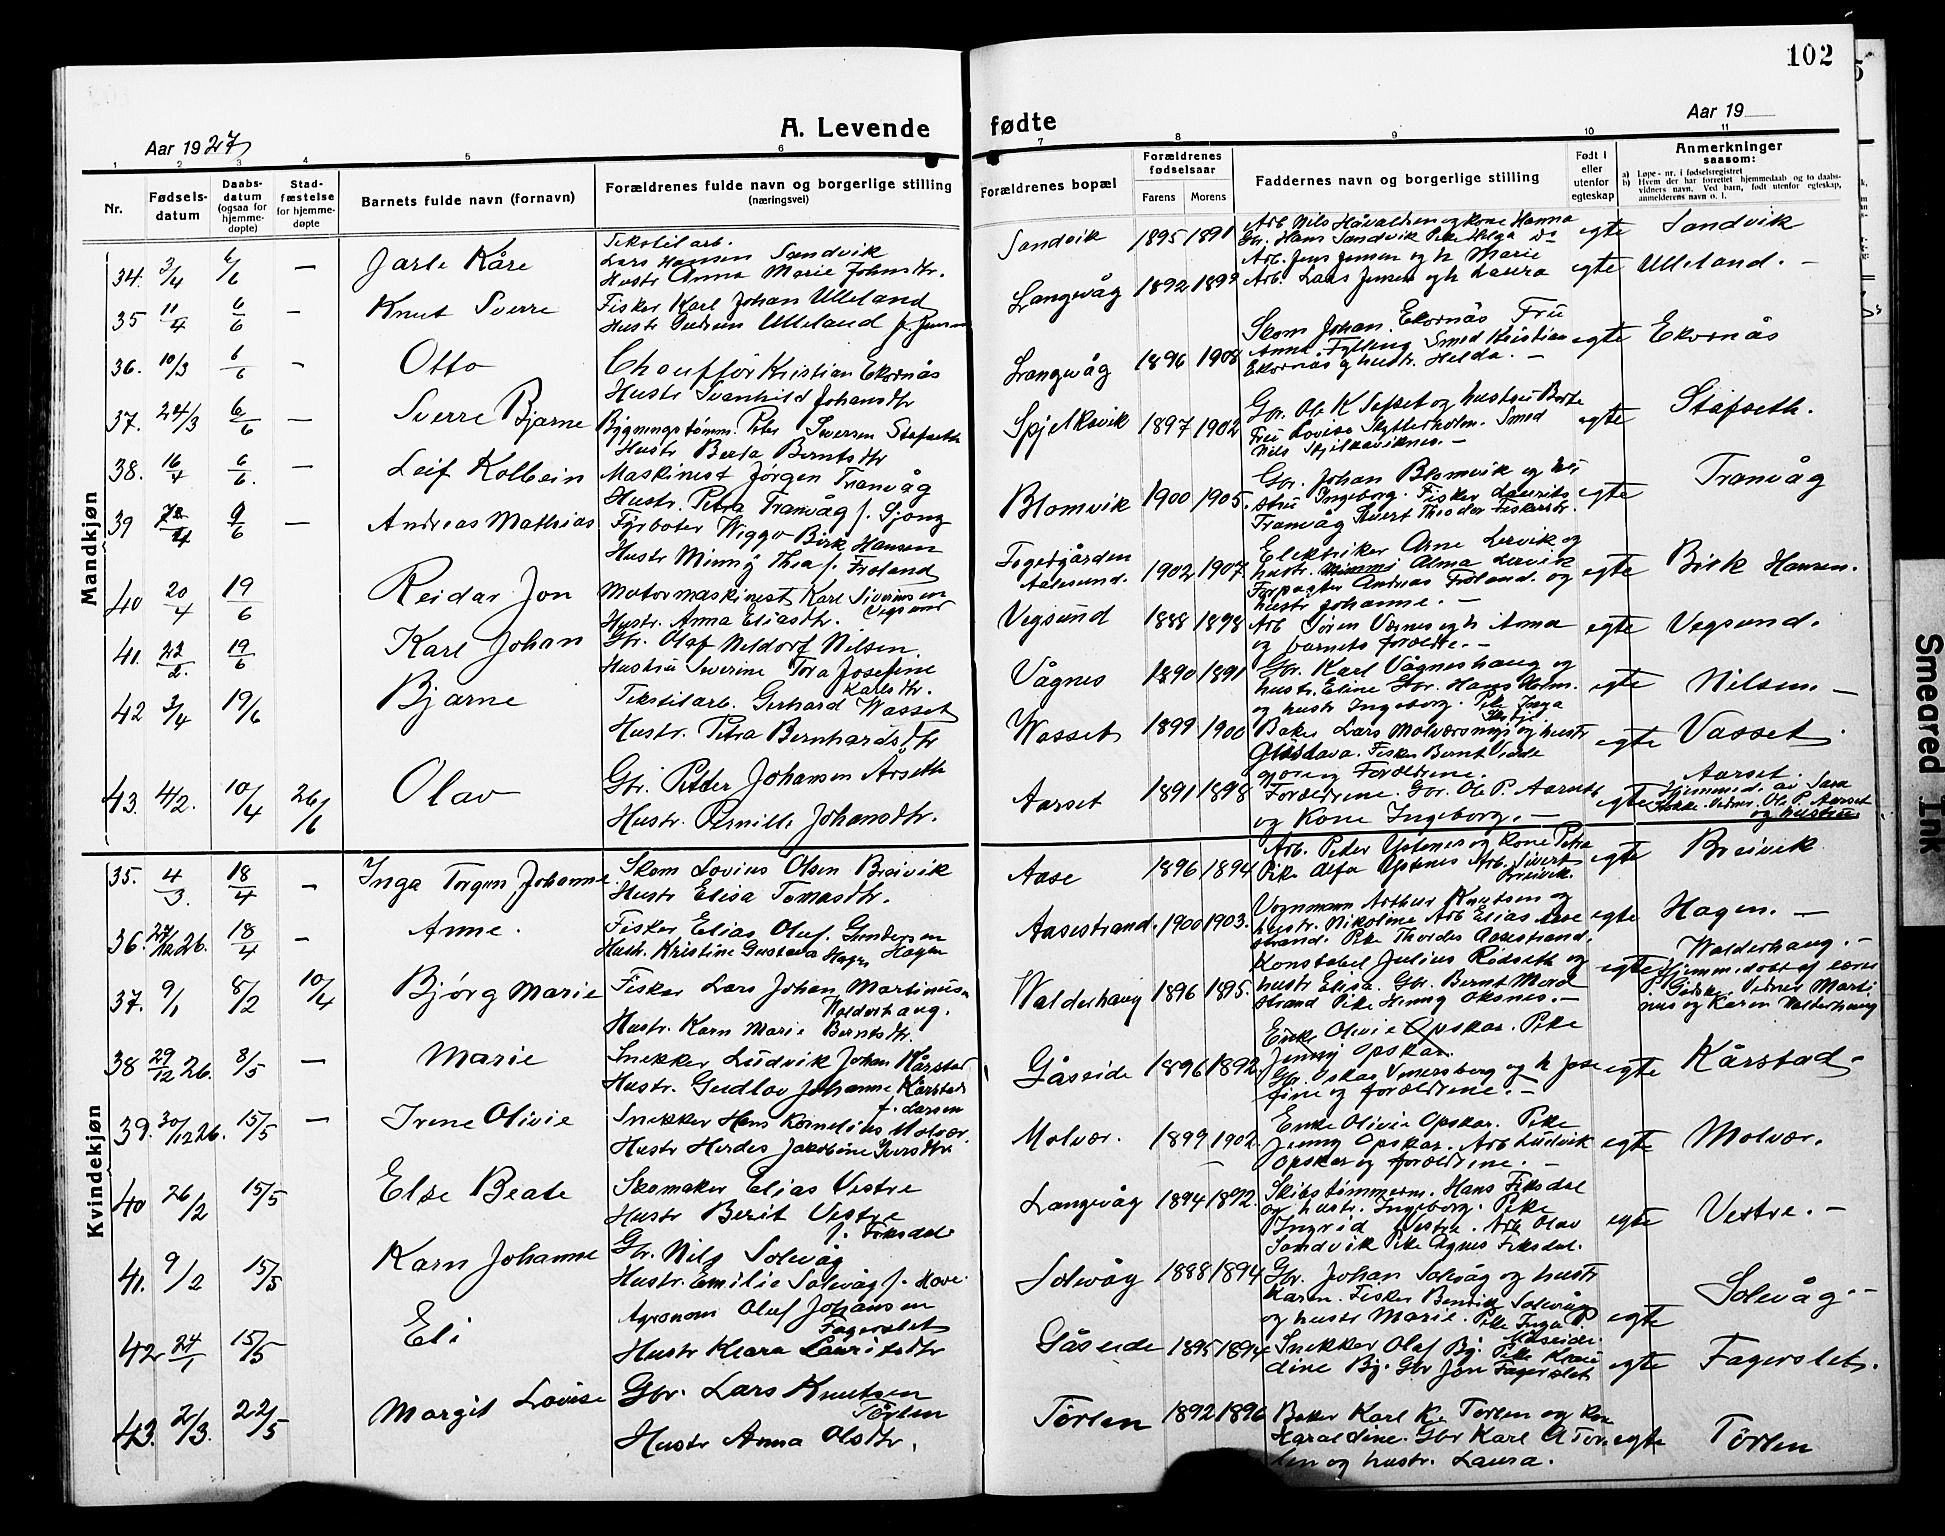 102
Aar 1927
A. Levende fødte
Aar 19
1 2 3 4 5 6 7 8 9 10 11
Nr.
Fødsels-
datum
Daabs-
datum
(ogsaa for
hjemme-
døpte)
Stad-
fæstelse
for hjemme-
døpte
Barnets fulde navn (fornavn)
Forældrenes fulde navn og borgerlige stilling
(næringsvei)
Forældrenes bopæl
Forældrenes
fødselsaar
Farens Morens
Faddernes navn og borgerlige stilling
Født i
eller
utenfor
egteskap
Anmerkninger
saasom:
a) Løpe-nr. i fødselsregistret
b) Hvem der har forrettet hjemmedaab og to daabs-
vidners navn. Ved barn, født utenfor egteskap,
anmelderens navn o. l.
Mandkjøn
34. 3/4 6/6 — Jarle Kåre
Tekstilarb.
Lars Hansen Sandvik
Hustr. Anna Marie Johnsdtr.
Sandvik 1895 1891
Arb Nils Håvaldsen og kone Hanna
Gbr. Hans Sandvik Pike Helga do
egte Sandvik
35 11/4 6/6 — Knut Sverre
Fisker Karl Johan Ulleland
Hustr Gudrun Ulleland f. Jensen
Langevåg 1892 1899
Arb. Jens Jensen og h Marie
Arb. Lars Jensen og h Laura
egte Ulleland. —
36. 10/3 6/6 — Otto
Chauffør Kristian Ekornås
Hustr Svanhild Johansdtr
Langevåg 1896 1908
Skom Johan Ekornås Fru
Anna Fylling Smed Kristian
Ekornås og hustr. Helda. —
egte Ekornås
37. 24/3 6/6 — Sverre Bjarne
Bygningstømm. Peter Iversen Stafseth
Hustr Berta Berntsdtr
Spjelkavik 1897 1902
Gbr. Ole K Sefset og hustru Berte
Fru Lovise Slytterholm. Smed
Nils Spjelkaviknes. —
egte Stafseth.
38. 16/4 6/6. — Leif Kolbein
Maskinist Jørgen Tranvåg
Hustr. Petra Tranvåg f. Sjong
Blomvik 1900 1905.
Gbr. Johan Blomvik og hu
stru Ingeborg. Fisker Laurits
Tranvåg Sivert Theodor Fiskerstr.
egte Tranvåg
39 9/6 — Andreas Mathias
Fyrbøter Wiggo Birk Hansen
Hustr Minny Thea f. Froland
Fogedgården
Aalesund. 1902 1907
Elektriker Arne Lervik og
hustr. Alma Lervik
Forpagter Andreas Froland og
hustr Johanne. —
egte Birk Hansen.
40 20/4 19/6 Reidar Jon
Motormaskinist Karl Siverinsen
Vegsund
Hustr. Anna Eliasdtr.
Vegsund 1888 1898
Arb Søren Værnes og h Anna
og barnets forældre. —
egte Vegsund.
41. 22/2. 19/6 Karl Johan
Gbr. Olaf Meldorf Nilsen.
Hustru Severine Tora Josefine
Karlsdtr.
Vågnes 1890 1891
Gbr. Karl Vågneshaug og
hustr. Eline Gbr. Hans Holm.
og hustr Ingeborg. Pike Inga
egte Nilsen. —
42 3/4 19/6 Bjarne
Tekstilarb. Gerhard Wasset
Hustr. Petra Bernhardsdtr
Wasset 1899 1900
Baker Lars Molværsmyr og hustr
Gustava. Fisker Bernt Vedde
og Forældrene.
egte Vasset.
43. 4/2. 10/4 26/6 Olav
Gbr. Petter Johansen Årseth
Hustr. Pernille Johansdtr.
Aarset 1891 1898
Forældrene. Gbr. Ole P. Aarset
og Kone Ingeborg. —
egte Aarset.
Hjemmed. av Sara
Vidner. Ole P. Aarset
og hustru
Kvindekjøn
35. 4/3. 18/4 — Inga Torgun Johanne
Skom Lovius Olsen Breivik
Hustr Elisa Tomasdtr.
Aase 1896 1894
Arb. Peter Ystenes og kone Petra
Pike Alfa Ystenes Arb. Sivert
Breivik.
egte Breivik
36. 27/12 26. 18/4 — Anne.
Fisker Elias Oluf Gundersen
Hagen
Hustr. Kristine Gustava
Aasestrand. 1900 1903.
Vognmann Arthur Knutsen og
hustr. Nikoline Arb Elias Aase
strand. Pike Thordis Aasestrand.
egte Hagen. —
37. 9/1 8/2 10/4 Bjørg Marie
Fisker Lars Johan Martinus.
Walderhaug.
Hustr. Karn Marie Berntsdtr.
Walderhaug 1896 1895.
Konstabel Julius Rødseth og
hustr Elisa. Gbr. Bernt Mord
strand Pike Henny Oksnes. —
egte Walderhaug. —
Hjemmedøbt af lærer
Giske. Vidner Marti
nus og Karen Walderhaug
38 29/12 26. 8/5 — Marie
Snekker Ludvik Johan Kårstad
Hustr. Gudlov Johanne Kårstad
f. Larsen
Gåseide 1896 1892
Enke Olivie Opskar. Pike
Jenny Opskar.
Gbr. Oskar Emersberg og h Jose
fine og forældrene. —
egte Kårstad —
39. 30/12 26. 15/5 — Irene Olivie
Snekker Hans Kornelius Molvær
Hustr Herdes Jakobine Iversdtr.
Molvær. 1899 1902
Enke Olivie Opskar. Pike
Jenny Opskar. Arb Ludvik
Opskar og forældrene. —
egte Molvær.
40 26/2 15/5 Else Beate
Skomaker Elias Vestre
Hustr Berit Vestre
f. Fiksdal
Langevåg 1894 1892.
Skibstømmerm. Hans Fiksdal
og hustr. Ingeborg. Pike
Ingrid Vestre. Arb Olav
Sandvik Pike Agnes Fiksdal.
egte Vestre. —
41. 9/2 15/5 Karn Johanne
Gbr. Nils Solevåg
Hustr. Emilie Solevåg f. Hove
Solevåg 1888 1894
Gbr. Johan Solevåg og hustr
Karen. Fisker Benrik Solevåg
og hustr Marie. Pike Inga P.
Måseide.
egte Solevåg. —
42 24/1 15/5 Eli
Agronom Oluf Johansen
Fagerslet
Hustr Klara Lauritsdtr
Gåseide 1895 1894
Snekker Olaf By. Pike Klau
dine By. Gbr Jon Fagerslet
egte Fagerslet.
43. 2/3. 22/5 Margit Lovise
Gbr. Lars Knutsen
Tørlen
Hustr Anna Olsdtr.
Tørlen 1892 1896
Baker Karl K. Tørlen og kone
Haraldine. Gbr Karl A Tør
len og hustr. Laura.
egte Tørlen
Smeared Ink